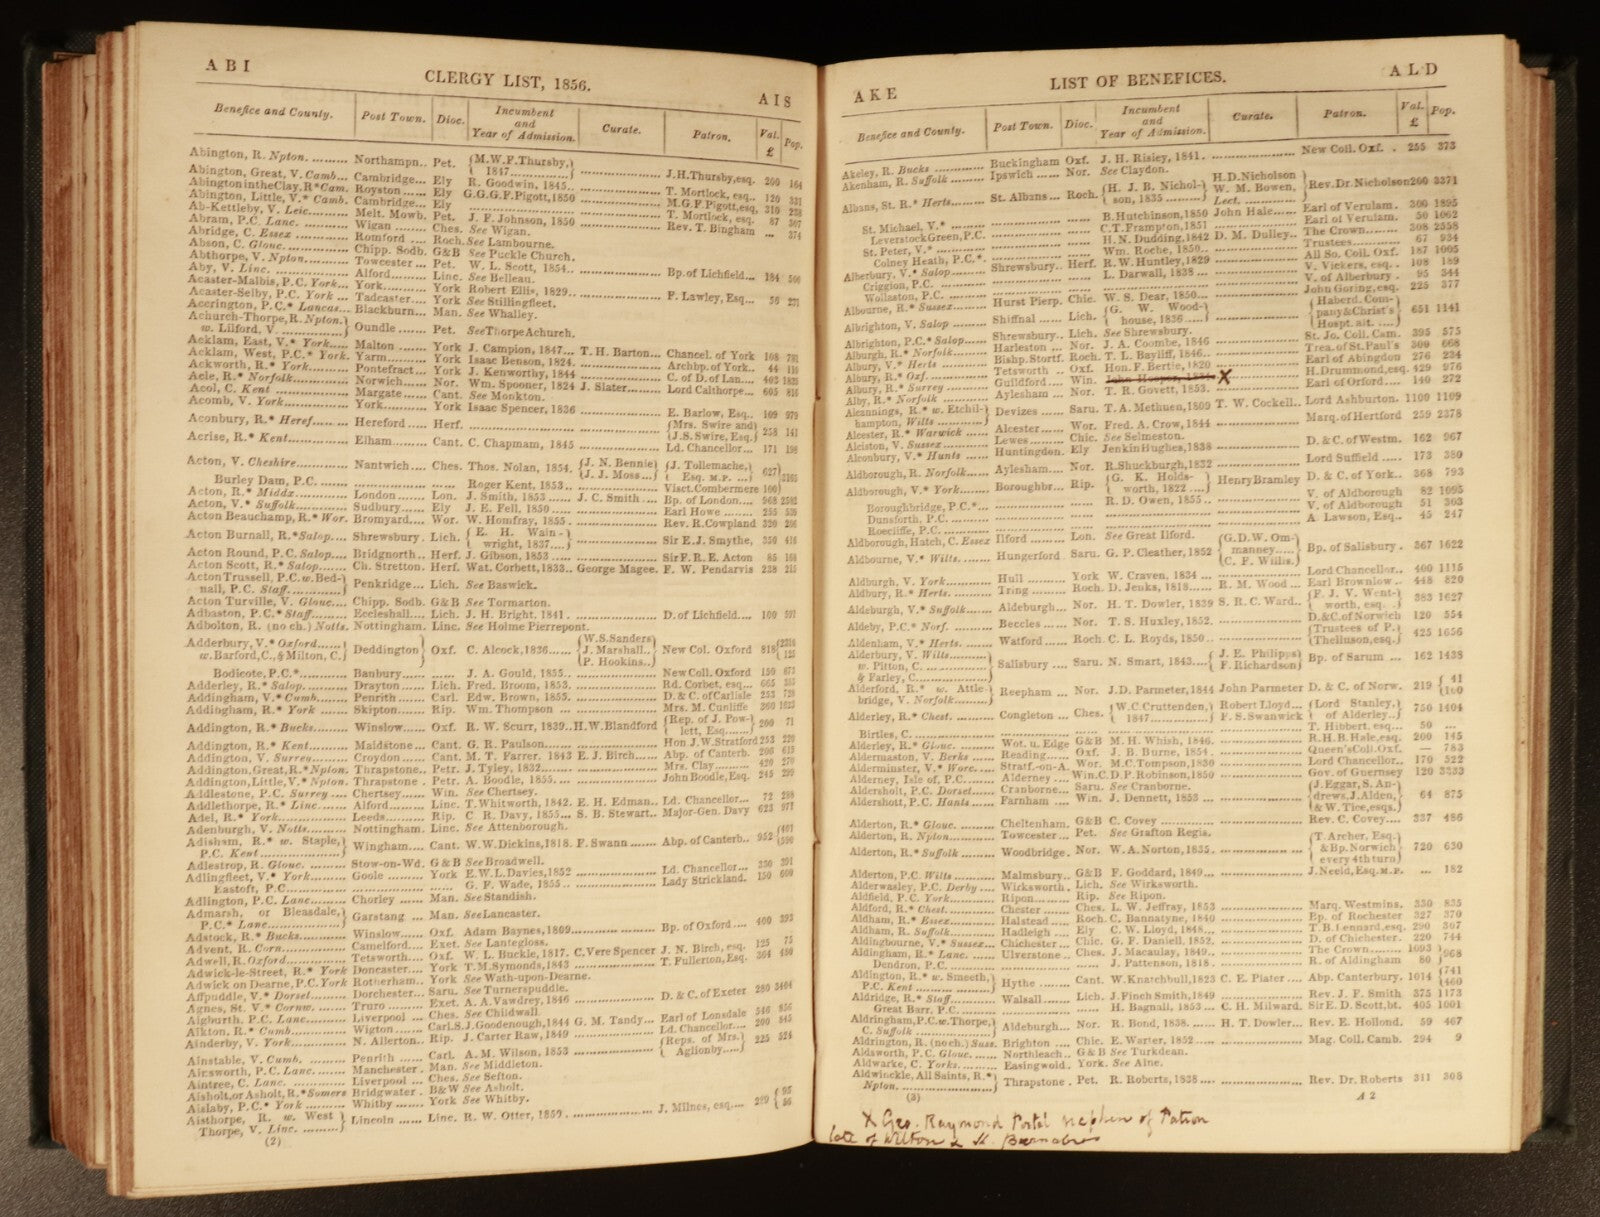 ABI
CLERGY LIST, 1856.
AIS
Benefice and County. Post Town. Dioc. Incumbent and Year of Admission. Curate. Patron. Val. £ Pop.
Abington, R. Npton. Northampn.. Pet. {M.W.F.Thursby,} 1847 J.H.Thursby,esq. 200 164
Abington, Great, V. Camb... Cambridge... Ely R. Goodwin, 1845.. T. Mortlock, esq.. 120
AbingtonintheClay,R*Cam. Royston Ely G.G.G.F.Pigott,1850 M.G.F.Pigott,esq, 310
Abington, Little, V.* Camb. Cambridge... Ely T. Mortlock, esq. 87
Ab-Kettleby, V. Leic. Melt. Mowb. Pet. J. F. Johnson, 1850 Rev. T. Bingham
Abram, P.C. Lanc. Wigan Ches. See Wigan.
Abridge, C. Essex Romford Roch. See Lambourne.
Abson, C. Glouc. Chipp. Sodb. G&B See Puckle Church.
Abthorpe, V. Npton Towcester Pet. W. L. Scott, 1854.. Bp. of Lichfield... 184
Aby, V. Linc. Alford Linc. See Belleau.
Acaster-Malbis, P.C. York... York York Robert Ellis, 1829.. F. Lawley, Esq... 56
Acaster-Selby, P.C. York Tadcaster York See Stillingfleet.
Accrington, P.C.* Lancas... Blackburn... Man. See Whalley.
Achurch-Thorpe,R. Npton.} w. Lilford, V. Oundle Pet. See Thorpe Achurch.
Acklam, East, V.* York Malton York J. Campion, 1847... T. H. Barton... Chancel. of York 108
Acklam, West, P.C.* York. Yarm York Isaac Benson, 1824. Archbp. of York.. 44
Ackworth, R.* York Pontefract... York J. Kenworthy, 1844 C. of D. of Lan.... 403
Acle, R.* Norfolk Norwich Nor. Wm. Spooner, 1824 J. Slater Lord Calthorpe... 605
Acol, C. Kent Margate Cant. See Monkton.
Acomb, V. York York York Isaac Spencer, 1836 E. Barlow, Esq.. 109 979
Aconbury, R.* Heref. Hereford Herf. {Mrs. Swire and} {J.S. Swire, Esq.} 258 141
Acrise, R.* Kent Elham Cant. C. Chapmam, 1845 Ld. Chancellor... 171
Acton, V. Cheshire Nantwich Ches. Thos. Nolan, 1854. {J. N. Bennie} {J. J. Moss...} {J. Tollemache,} Esq. M.P. 627
Burley Dam, P.C. Roger Kent, 1853.. Visct. Combermere 100
Acton, R.* Middx London Lon. J. Smith, 1853 J. C. Smith Bp. of London.... 968
Acton, V.* Suffolk Sudbury Ely J. E. Fell, 1850 Earl Howe 255
Acton Beauchamp, R.* Wor. Bromyard... Wor. W. Homfray, 1855. Rev. R. Cowpland 320
Acton Burnall, R.* Salop. Shrewsbury. Lich. {E. H. Wain-} wright, 1837 Sir E.J. Smythe, 350
Acton Round, P.C. Salop. Bridgnorth.. Herf. J. Gibson, 1853 Sir F.R.E. Acton 85
Acton Scott, R.* Salop Ch. Stretton. Herf. Wat. Corbett, 1833.. George Magee. F. W. Pendarvis 238
Acton Trussell, P.C. w. Bed-} nall, P.C. Staff. Penkridge... Lich. See Baswick.
Acton Turville, V. Glouc. Chipp. Sodb. G&B See Tormarton.
Adbaston, P.C.* Staff. Eccleshall.. Lich. J. H. Bright. 1841. D. of Lichfield.... 100
Adbolton, R. (no ch.) Notts. Nottingham. Linc. See Holme Pierrepont.
Adderbury, V.* Oxford} w. Barford, C., & Milton, C. Deddington Oxf. C. Alcock, 1836 {W.S. Sanders} J. Marshall.. P. Hookins.. New Col. Oxford 818
Bodicote, P.C.* Banbury J. A. Gould, 1855. New Coll. Oxford 150
Adderley, R.* Salop Drayton Lich. Fred. Broom, 1853. Rd. Corbet, esq... 665
Addingham, V.* Cumb. Penrith Carl. Edw. Brown, 1855. D. & C. of Carlisle 253
Addingham, R.* York Skipton Rip. Wm. Thompson Mrs. M. Cunliffe 360
Addington, R.* Bucks Winslow Oxf. R. W. Scurr, 1839.. H.W. Blandford {Rep. of J. Pow-} lett, Esq. 200 71
Addington, R.* Kent Maidstone... Cant. G. R. Paulson Hon J.W. Stratford 253
Addington, V. Surrey Croydon Cant. M. T. Farrer. 1843 E. J. Birch Abp. of Canterb. 206
Addington, Great, R.* Npton. Thrapstone.. Petr. J. Tyley, 1832 Mrs. Clay 420 270
Addington, Little, V.* Npton. Thrapstone. Petr. A. Boodle, 1855.... John Boodle, Esq. 245 299
Addlestone, P.C. Surrey Chertsey Win. See Chertsey.
Addlethorpe, R.* Linc. Alford Linc. T. Whitworth, 1842. E. H. Edman.. Ld. Chancellor... 72
Adel, R.* York Leeds Rip. C R. Davy, 1855... S. B. Stewart.. Major-Gen. Davy 623 971
Adenburgh, V. Notts. Nottingham. Linc. See Attenborough.
Adisham, R.* w. Staple,} P.C. Kent Wingham.... Cant. W.W. Dickins, 1818. F. Swann Abp. of Canterb.. 952
Adlestrop, R. Glouc. Stow-on-Wd. G&B See Broadwell.
Adlingfleet, V.* York Goole York E.W.L. Davies, 1852 Ld. Chancellor... 330 391
Eastoft, P.C. G. F. Wade, 1855.. Lady Strickland. 150 600
Adlington, P.C. Lanc. Chorley Man. See Standish.
Admarsh, or Bleasdale,} P.C.* Lanc. Garstang Man. See Lancaster.
Adstock, R.* Bucks Winslow Oxf. Adam Baynes, 1809 Bp. of Oxford.... 400 393
Advent, R. Corn. Camelford... Exet. See Lanteglos.
Adwell, R. Oxford Tetsworth.. Oxf. W. L. Buckle, 1817. C. Vere Spencer J. N. Birch, esq. 125 75
Adwick-le-Street, R.* York Doncaster.... York T.M. Symonds, 1843 T. Fullerton, Esq. 364
Adwick on Dearne, P.C. York Rotherham.. York See Wath-upon-Dearne.
Affpuddle, V.* Dorset Dorchester... Saru. See Turnerspuddle.
Agnes, St. V.* Cornw. Truro Exet. A. A. Vawdrey, 1846 D. & C. of Exeter 280
Aigburth, P.C. Lanc. Liverpool Ches. See Childwall.
Aikton, R.* Cumb. Wigton Carl. S.J. Goodenough, 1844 G. M. Tandy... Earl of Lonsdale 546
Ainderby, V. York N. Allerton.. Rip. J. Carter Raw, 1849 Ld. Chancellor.... 200
Ainstable, V. Cumb. Penrith Carl. A. M. Wilson, 1853 {Reps. of Mrs.} Aglionby 225 524
Ainsworth, P.C. Lanc. Manchester. Man. See Middleton.
Aintree, C. Lanc. Liverpool Ches. See Sefton.
Aisholt, or Asholt, R.* Somers Bridgwater. B&W See Asholt.
Aislaby, P.C.* York Whitby York See Whitby.
Aisthorpe, R. w. West} Thorpe, V. Linc. Lincoln Linc. R. W. Otter, 1850. J. Milnes, esq....
(2)
AKE
LIST OF BENEFICES.
ALD
Benefice and County. Post Town. Dioc. Incumbent and Year of Admission. Curate. Patron. Val. £ Pop.
Akeley, R. Bucks Buckingham Oxf. J. H. Risley, 1841. New Coll. Oxf. 255 373
Akenham, R. Suffolk Ipswich Nor. See Claydon.
Albans, St. R.* Herts. St. Albans... Roch. {H. J. B. Nichol-} son, 1835 H.D. Nicholson W. M. Bowen, Lect. Rev. Dr. Nicholson 200 3371
St. Michael, V.* B. Hutchinson, 1850 John Hale Earl of Verulam. 300 1895
Leverstock Green, P.C. C.T. Frampton, 1851 Earl of Verulam. 50 1062
St. Peter, V.* H. N. Dudding, 1842 D. M. Dulley.. The Crown 308 2558
Colney Heath, P.C.*. Wm. Roche, 1850.. Trustees 67 934
Alberbury, V.* Salop Shrewsbury.. Herf. R.W. Huntley, 1829 All So. Coll. Oxf. 187 1005
Criggion, P.C. V. Vickers, esq.. 108 189
Wollaston, P.C. L. Darwall, 1838 V. of Alberbury. 95 344
Albourne, R.* Sussex Hurst Pierp. Chic. W. S. Dear, 1850... John Goring, esq. 225 377
Albrighton, V. Salop Shiffnal Lich. {G. W. Wood-} house, 1836 {Haberd. Com-} pany & Christ's Hospt. alt. 651 1141
Albrighton, P.C.* Salop Shrewsbury.. Lich. See Shrewsbury.
Alburgh, R.* Norfolk Harleston Nor. J. A. Coombe, 1846 St. Jo. Coll. Cam. 395 575
Albury, V.* Herts Bishp. Stortf. Roch. T. L. Bayliff, 1846.. Trea. of St. Paul's 300 668
Albury, R.* Oxf. Tetsworth Oxf. Hon. F. Bertie, 1820 Earl of Abingdon 276 234
Albury, R.* Surrey Guildford Win. John Hooper, X H. Drummond, esq. 429 976
Alby, R.* Norfolk Aylesham Nor. T. R. Govett, 1853. Earl of Orford.... 140 272
Alcannings, R.* w. Etchil-} hampton, Wilts Devizes Saru. T. A. Methuen, 1809 T. W. Cockell.. Lord Ashburton. 1100 1109
Alcester, R.* Warwick Alcester Wor. Fred. A. Crow, 1844 Marq. of Hertford 259 2378
Alciston, V. Sussex Lewes Chic. See Selmeston.
Alconbury, V.* Hunts Huntingdon. Ely Jenkin Hughes, 1838 D. & C. of Westm. 162 967
Aldborough, R. Norfolk Aylesham.... Nor. R. Shuckburgh, 1832 Lord Suffield 173 380
Aldborough, V.* York Boroughbr... Rip. {G. K. Holds-} worth, 1822 Henry Bramley D. & C. of York.. 368 793
Boroughbridge, P.C.* R. D. Owen, 1855.. V. of Aldborough 82 1095
Dunsforth, P.C. V. of Aldborough 51 303
Roecliffe, P.C. A. Lawson, Esq.. 45 247
Aldborough, Hatch, C. Essex Ilford Lon. See Great Ilford.
Aldbourne, V.* Wilts. Hungerford Saru. G. P. Cleather, 1852 {G.D.W. Om-} manney {C. F. Willis.} Bp. of Salisbury. 367 1622
Aldburgh, V. York Hull York W. Craven, 1834 Lord Chancellor.. 400 1115
Aldbury, R.* Herts. Tring Roch. D. Jenks, 1818 R. M. Wood... Earl Brownlow.. 448 820
Aldeburgh, V.* Suffolk Aldeburgh... Nor. H. T. Dowler, 1839 S. R. C. Ward.. {F. J. V. Went-} worth, esq. 383 1627
Aldeby, P.C.* Norf. Beccles Nor. T. S. Huxley, 1852. D. & C. of Norwich 120 554
Aldenham, V.* Herts. Watford Roch. C. L. Royds, 1850.. {Trustees of P.} Thelluson, esq. 425 1656
Alderbury, V. Wilts} w. Pitton, C. & Farley, C. Salisbury Saru. N. Smart, 1843.... {J. E. Philipps} F. Richardson Bp. of Sarum 162 1438
Alderford, R.* w. Attle-} bridge, V. Norfolk Reepham Nor. J.D. Parmeter, 1844 John Parmeter D. & C. of Norw. 219 {41
Alderley, R.* Chest. Congleton Ches. {W.C. Cruttenden,} 1847 Robert Lloyd... F. S. Swanwick {Lord Stanley,} of Alderley 750 1404
Birtles, C. T. Hibbert, esq.. 50
Alderley, R.* Glouc. Wot. u. Edge G&B M. H. Whish, 1846. R.H.B. Hale, esq. 200 145
Aldermaston, V. Berks Reading Oxf. J. B. Burne, 1854. Queen's Coll. Oxf. — 783
Alderminster, V.* Worc. Stratf.-on-A. Wor. M.C. Tompson, 1830 Lord Chancellor.. 170 522
Alderney, Isle of, P.C. Alderney Win. C. D.P. Robinson, 1850 Gov. of Guernsey 120 3333
Aldersholt, P.C. Dorset Cranborne... Saru. See Cranborne.
Aldershott, P.C. Hants Farnham Win. J. Dennett, 1853 {J. Eggar, S. An-} drews, J. Alden, & W. Tice, esqs. 64 875
Alderton, R.* Glouc. Cheltenham. G&B C. Covey Rev. C. Covey 337 486
Alderton, R. Npton Towcester Pet. See Grafton Regis.
Alderton, R.* Suffolk Woodbridge. Nor. W. A. Norton, 1835. {T. Archer, Esq.} & Bp. Norwich every 4th turn 720 630
Alderton, P.C. Wilts Malmsbury.. G&B F. Goddard, 1849... J. Neeld, Esq. M.P. ... 182
Alderwasley, P.C. Derby Wirksworth. Lich. See Wirksworth.
Aldfield, P.C. York Ripon Rip. See Ripon.
Aldford, R.* Chest. Chester Ches. L. W. Jeffray, 1853 Marq. Westmins. 330 835
Aldham, R.* Essex Halstead Roch. C. Bannatyne, 1840 Bp. of Rochester 327 370
Aldham, R. Suffolk Hadleigh Ely C. W. Lloyd, 1848... T.B. Lennard, esq. 290 307
Aldingbourne, V.* Sussex... Chichester.. Chic. G. F. Daniell, 1852. D. of Chichester. 220 744
Aldingham, R.* Lanc. Ulverstone.. Ches. J. Macaulay, 1849.. The Crown 1093 } 968
Dendron, P.C. J. Pattenson, 1818. R. of Aldingham 80
Aldington, R.* w. Smeeth,} P.C. Kent Hythe Cant. W. Knatchbull, 1823 C. E. Plater Abp. Canterbury. 1014 {741 {460
Aldridge, R.* Staff Walsall Lich. J. Finch Smith, 1849 Rev. J. F. Smith 375 1173
Great Barr, P.C. H. Bagnall, 1853 C. H. Milward. Sir E. D. Scott, bt. 405 1001
Aldringham, P.C. w. Thorpe,} C. Suffolk Aldeburgh... Nor. R. Bond, 1838 H. T. Dowler... Rev. E. Hollond. 59 467
Aldrington, R. (no ch.) Suss. Brighton Chic. E. Warter, 1852 Mag. Coll. Camb. 294 9
Aldsworth, P.C. Glouc. Northleach.. G&B See Turkdean.
Aldwarke, C. Yorks. Easingwold. York. See Alne.
Aldwinckle, All Saints, R.*} Npton. Thrapstone. Pet. R. Roberts, 1838 Rev. Dr. Roberts 311 308
(3)
A 2
X Geo. Raymond Portal nephew of Patron
late of Wilton & St. Barnabas